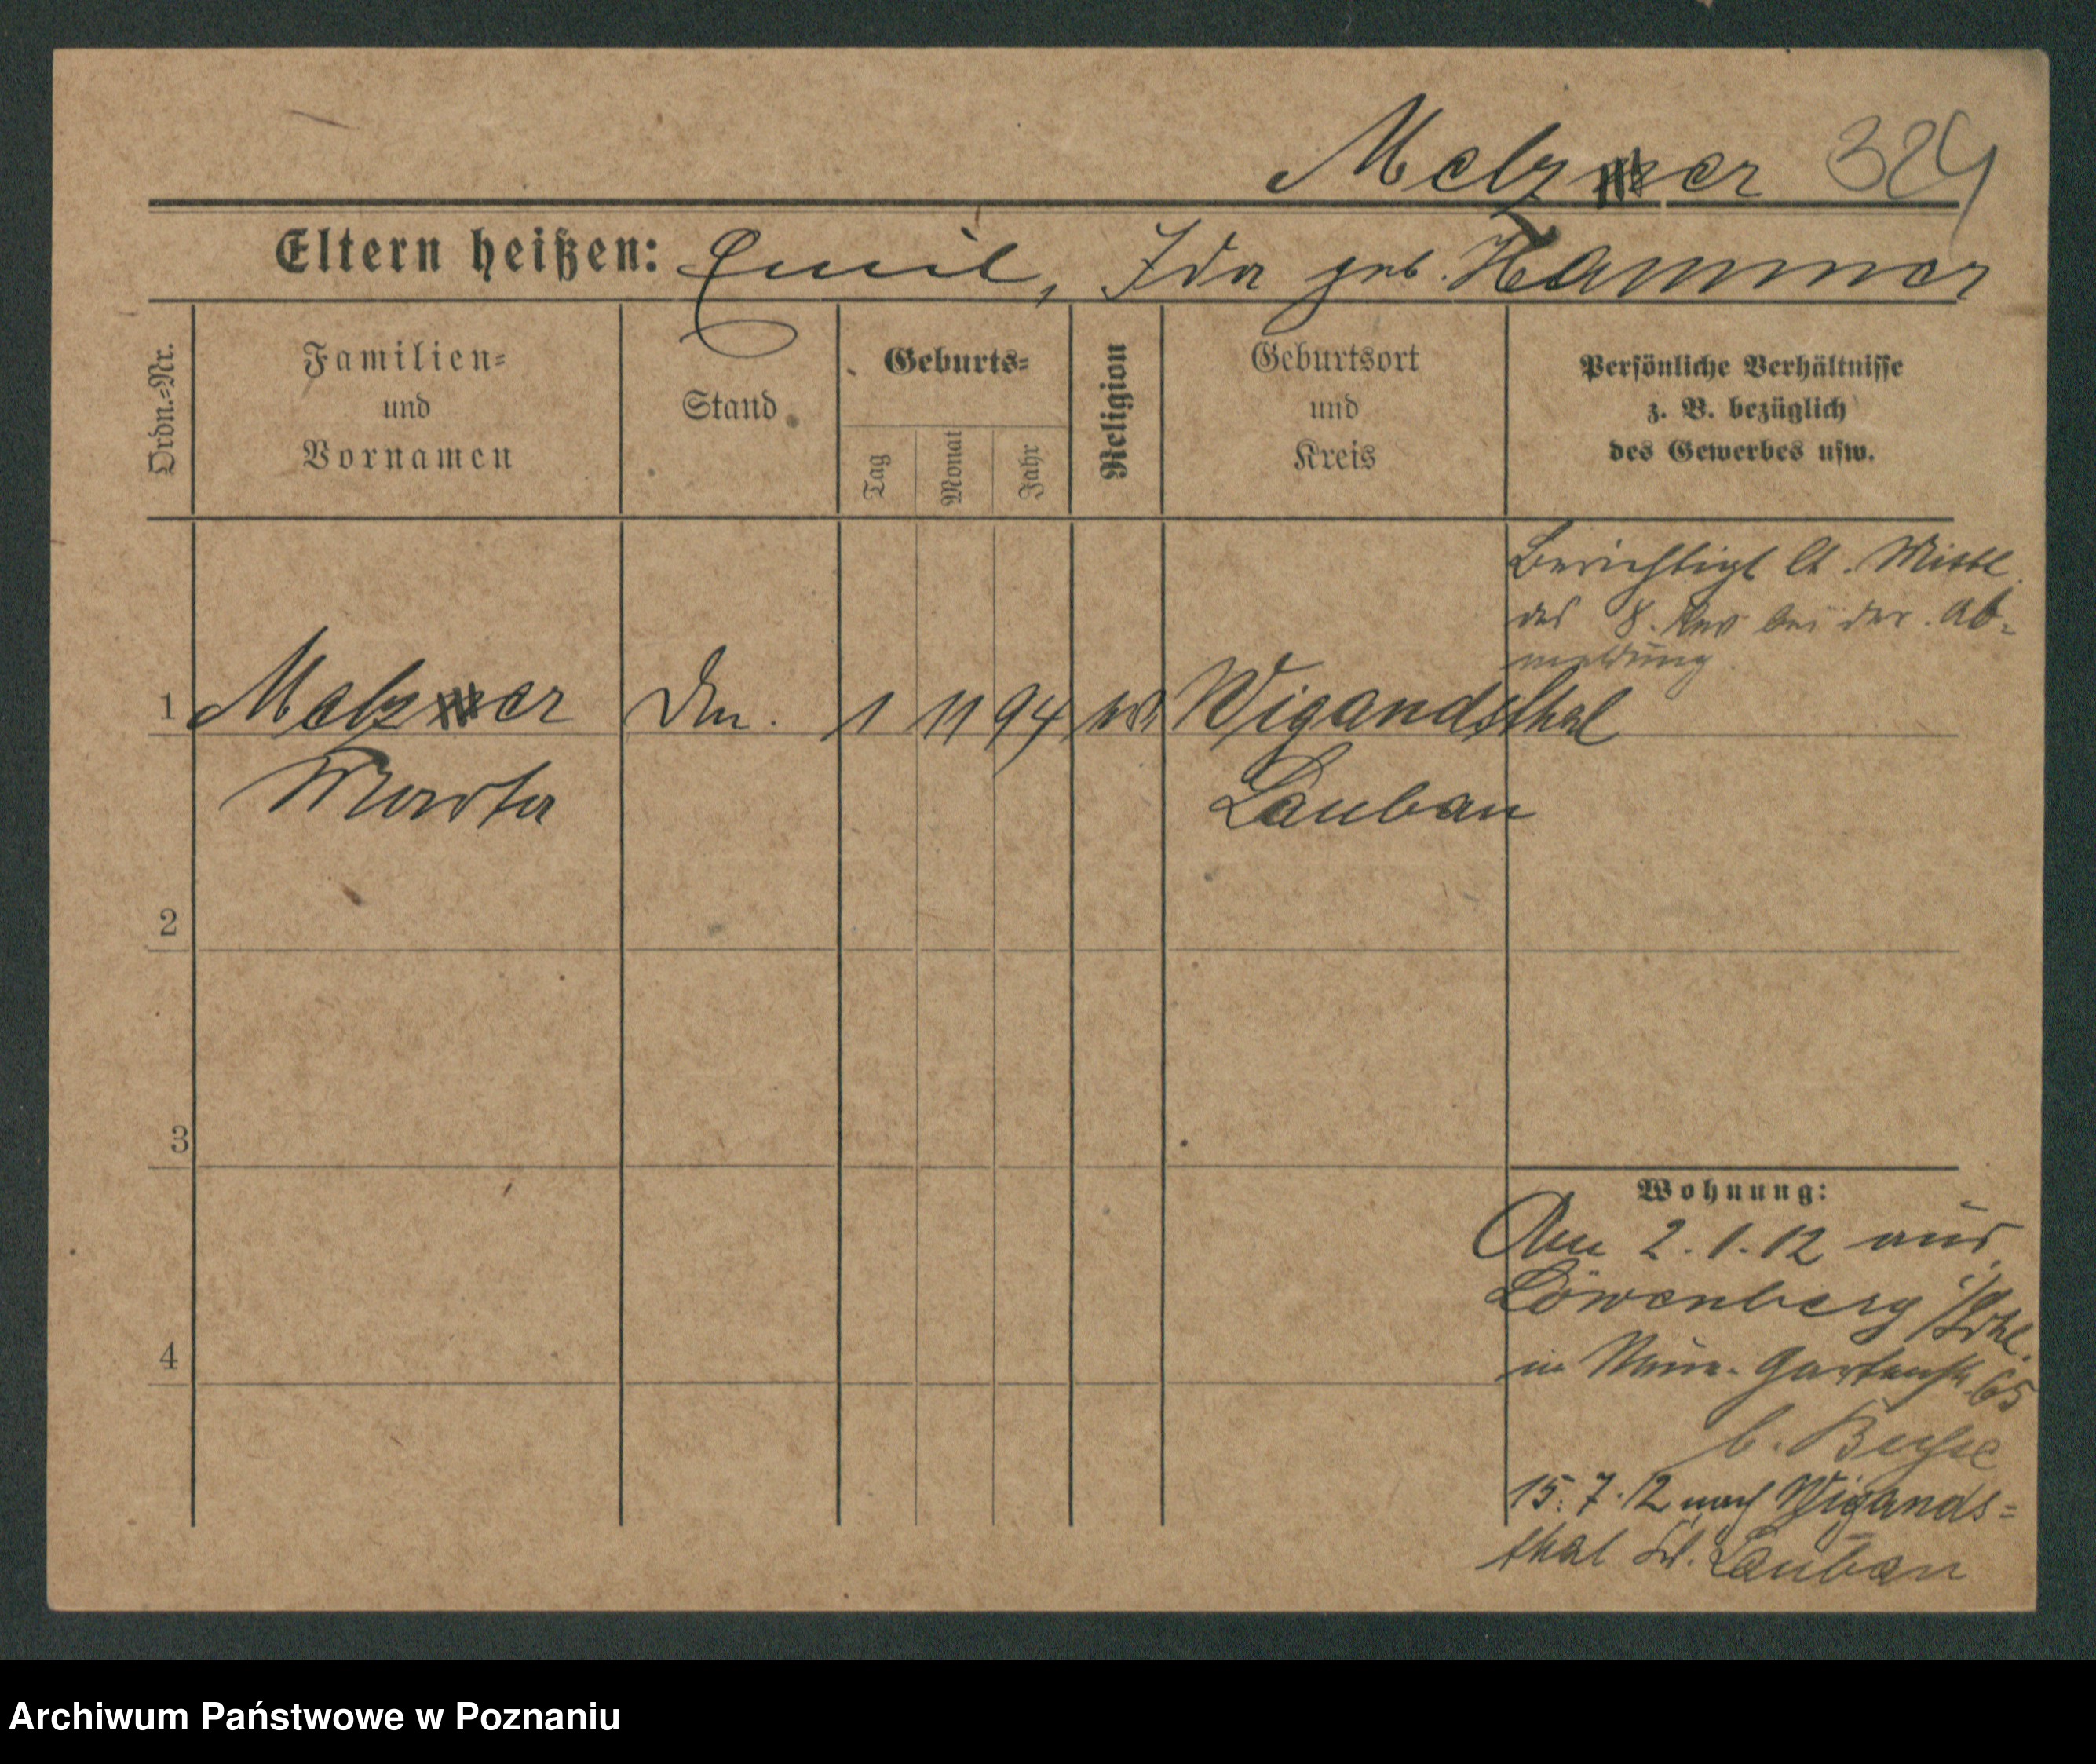 Melzer 324
Eltern heißen: Emil, Ida geb. Hammer
Ordn.=Nr.
Familien=
und
Vornamen
Stand
Geburts=
Tag
Monat
Jahr
Religion
Geburtsort
und
Kreis
Persönliche Verhältnisse
z. B. bezüglich
des Gewerbes usw.
Berichtigt lt. Mittl.
des 8. Rev bei der Ab=
meldung.
1 Melzer 1 11 94 Wigandsthal
Marta Lauban
2
3
4
Wohnung:
Am 2.1.12 aus
Löwenberg i/Schl.
in Gartenstr. 65
b.
15.7.12 nach Wigands=
thal Lauban
Archiwum Państwowe w Poznaniu